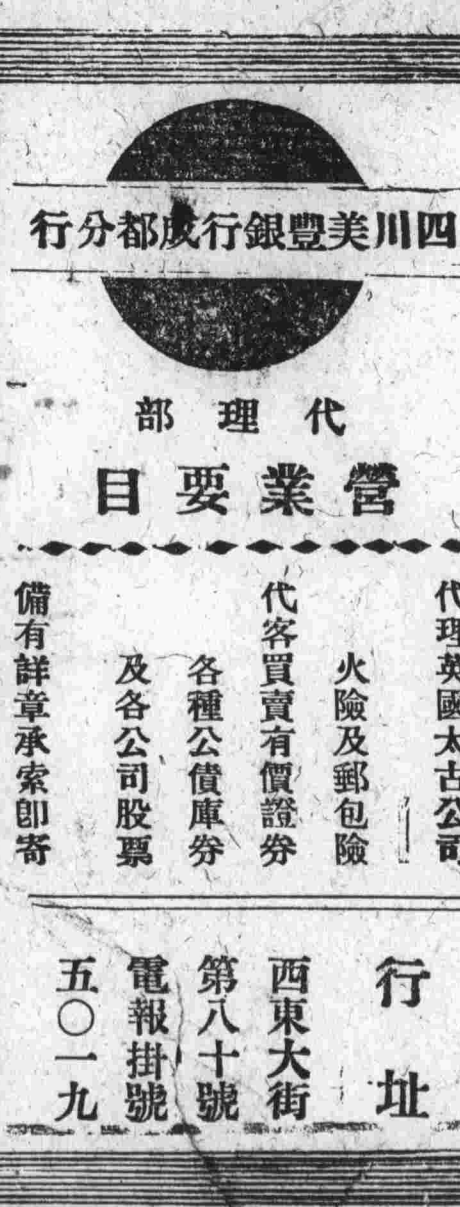 四川美豐銀行成都分行
代理部
營業要目
代理英國太古公司
火險及郵包險
代客買賣有價證券
各種公債庫券
及各公司股票
備有詳章承索即寄
行址
西東大街
第八十號
電報掛號
五〇一九